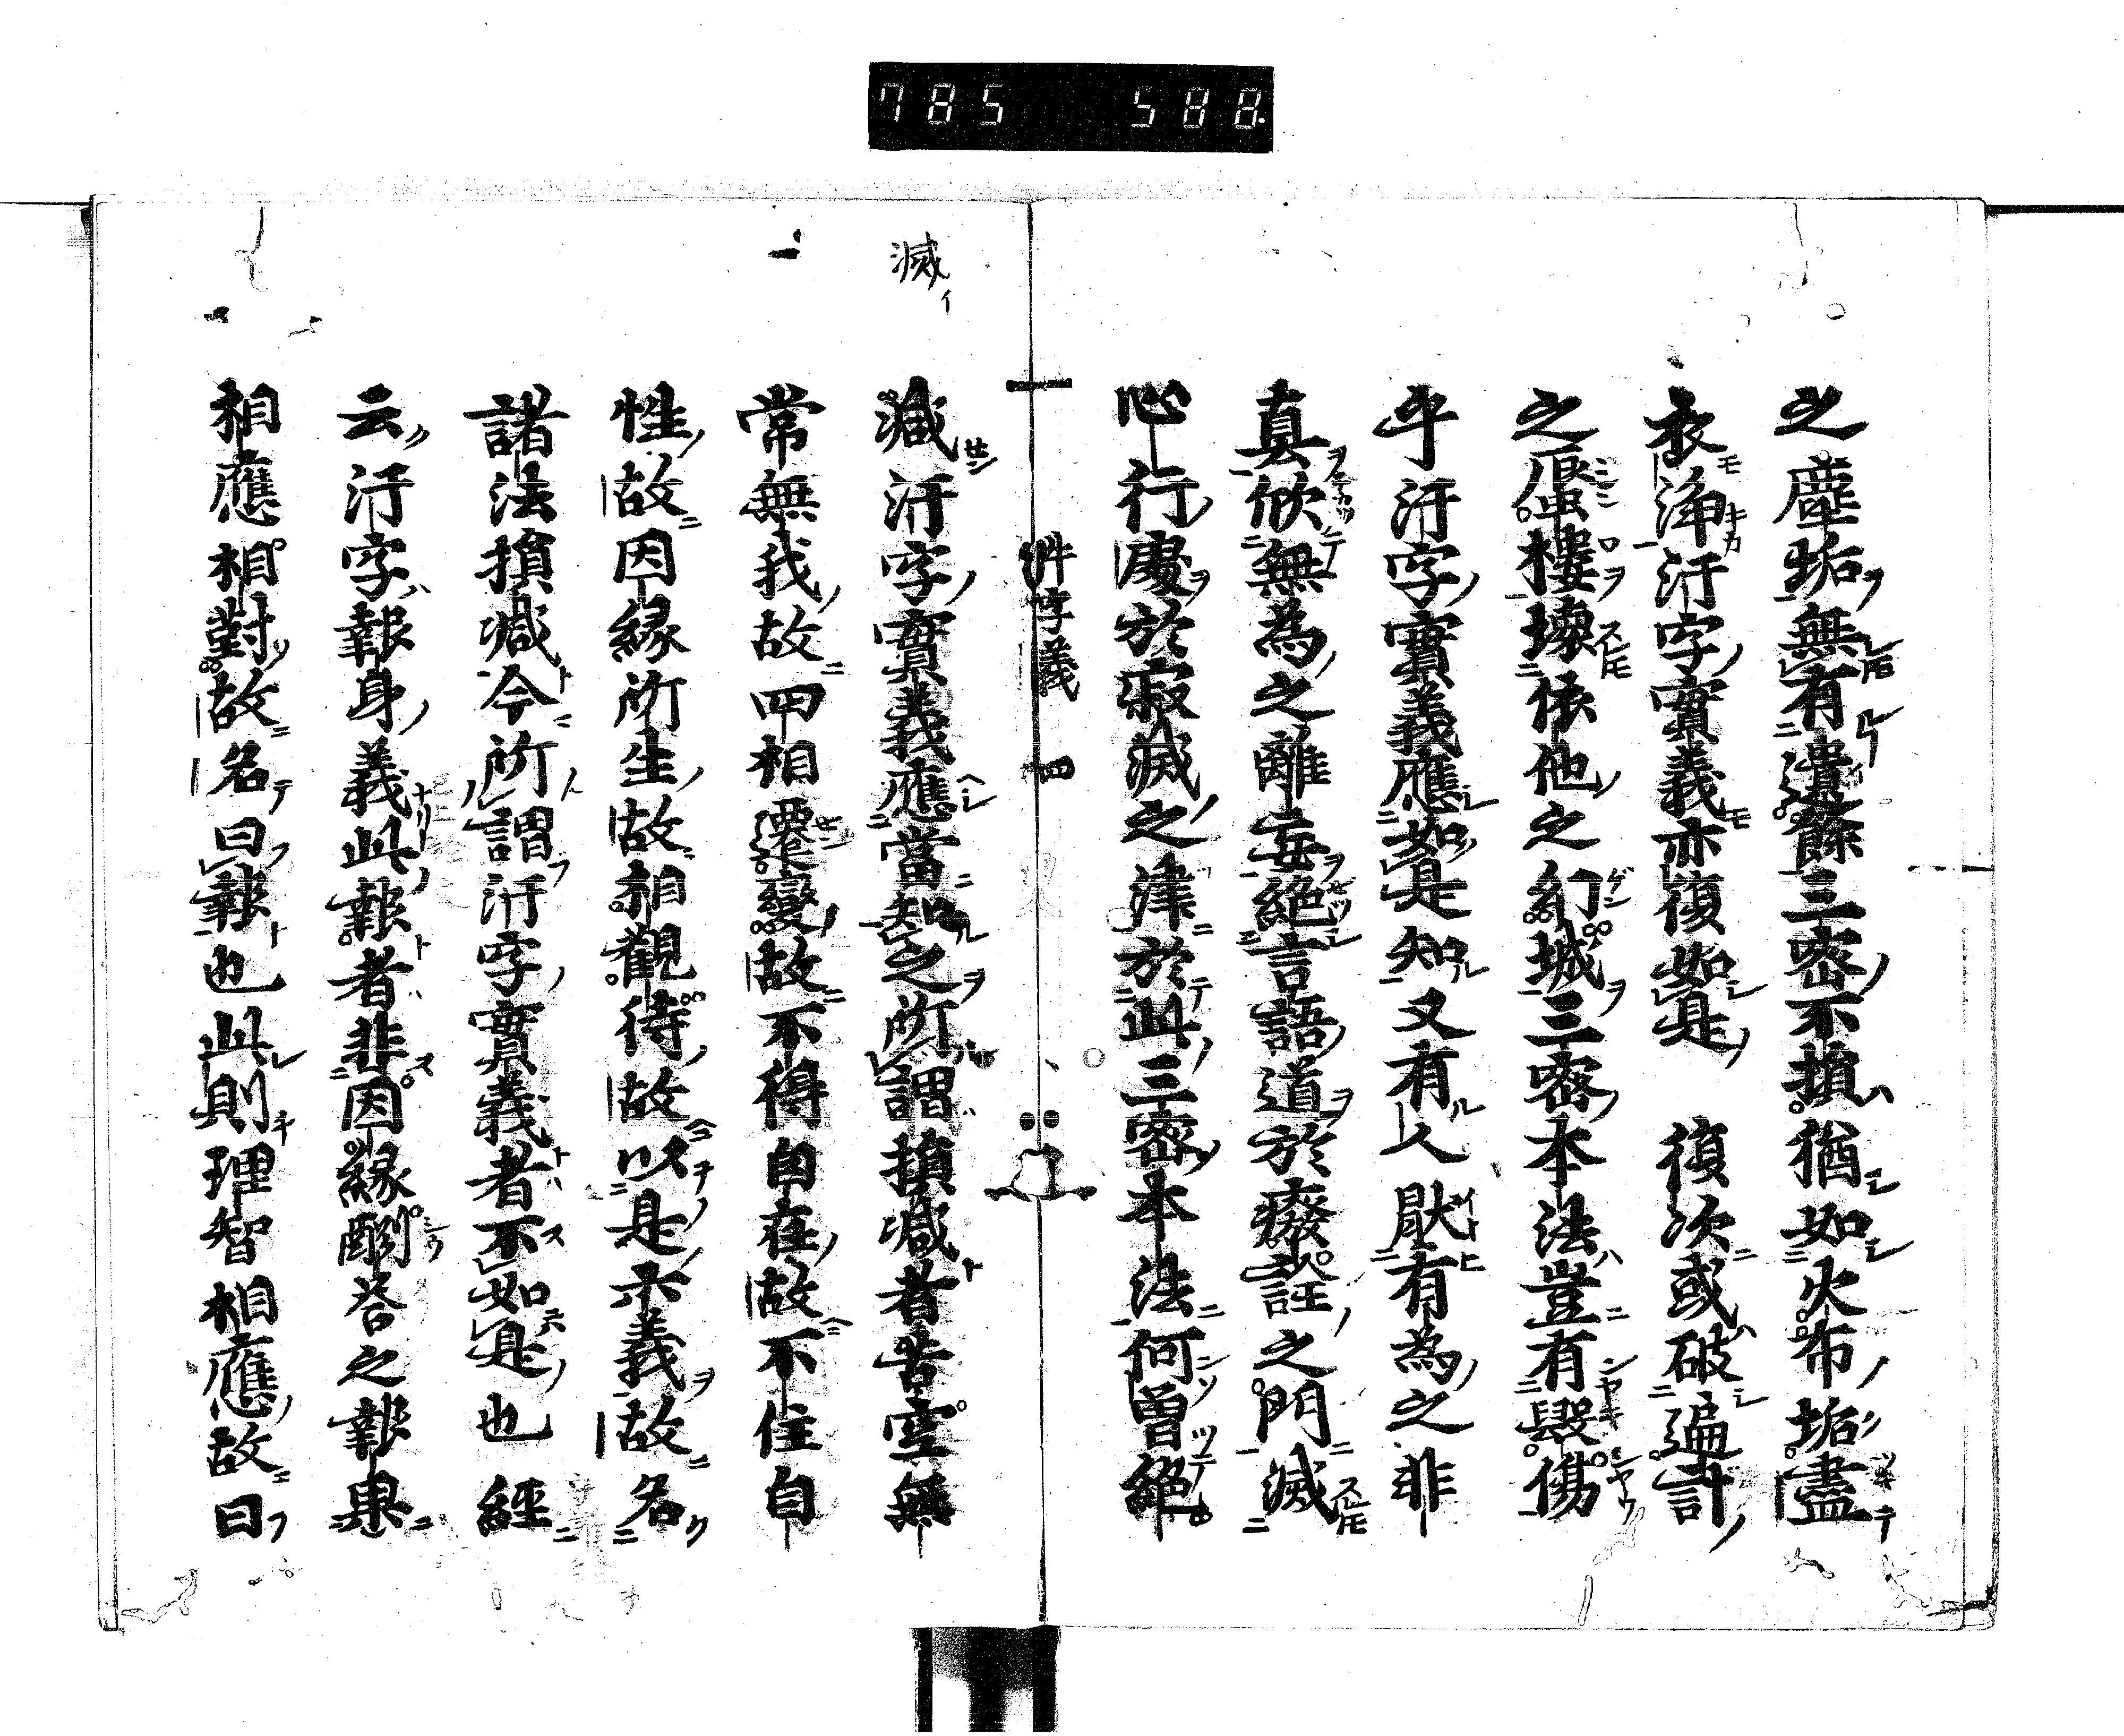 785 588
之塵垢無有遺餘三密不損猶如火布垢盡
衣淨汙字實義亦復如是 復次或破遍計
之蜃樓壞依他之幻城三密本法豈有毀傷
乎汙字實義應如是知又有人猒有為之非
真欣無為之離妄絕言語道於癈詮之門滅
心行處於寂滅之津於此三密本法何曾絕
吽字義 四
滅イ
減汙字實義應當知之所謂損减者苦空無
常無我故四相遷變故不得自在故不住自
性故因緣所生故相觀待故以是六義故名
諸法損减今所謂汙字實義者不如是也經
云汙字報身義此報者非因緣酬荅之報果
相應相對故名曰報也此則理智相應故曰